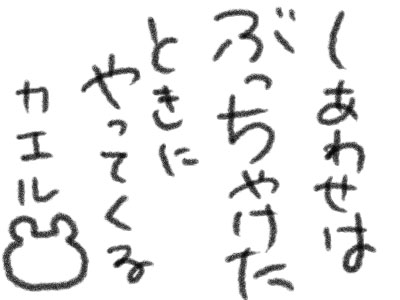 しあわせは
ぶっちゃけた
ときに
やってくる
カエル